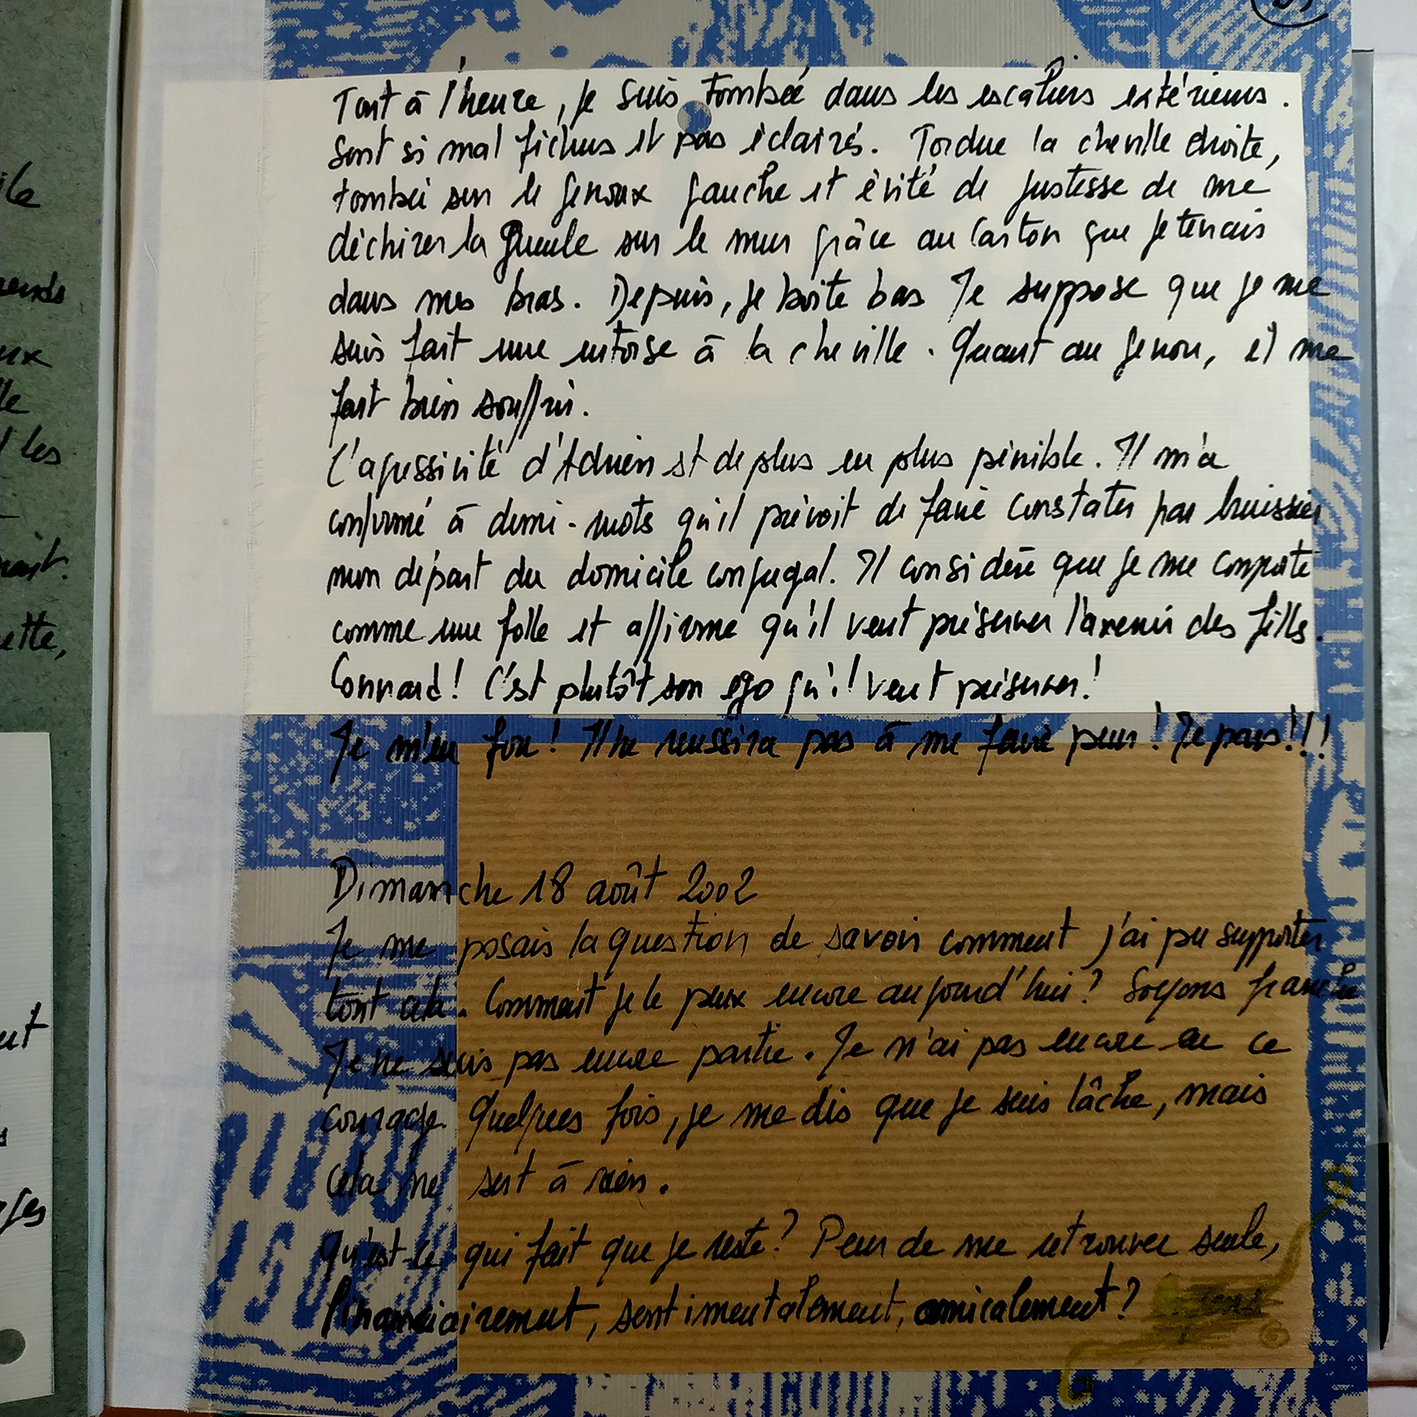 Tout à l'heure, je suis tombée dans les escaliers extérieurs.
Sont si mal fichus et pas éclairés. Tordue la cheville droite,
tombée sur le genoux gauche et évité de justesse de me
déchirer la gueule sur le mur grâce au carton que je tenais
dans mes bras. Depuis, je boite bas Je suppose que je me
suis fait une entorse à la cheville. Quant au genou, il me
fait bien souffrir.
L'agressivité d'Adrien est de plus en plus pénible. Il m'a
confirmé à demi-mots qu'il prévoit de faire constater par huissier
mon départ du domicile conjugal. Il considère que je me comporte
comme une folle et affirme qu'il veut préserver l'avenir des filles.
Connard! C'est plutôt son ego qu'il veut préserver!
Je m'en fou! Il ne reussira pas à me faire peur! Je pars!!!
Dimanche 18 août 2002
Je me posais la question de savoir comment j'ai pu supporter
tout cela. Comment je le peux encore aujourd'hui? Soyons franche
Je ne suis pas encore partie. Je n'ai pas encore eu ce
courage. Quelques fois, je me dis que je suis lâche, mais
cela ne sert à rien.
Qu'est-ce qui fait que je reste? Peur de me retrouver seule,
financiairement, sentimentalement, amicalement?
ile
rends
eux
lle
les
nait.
ette,